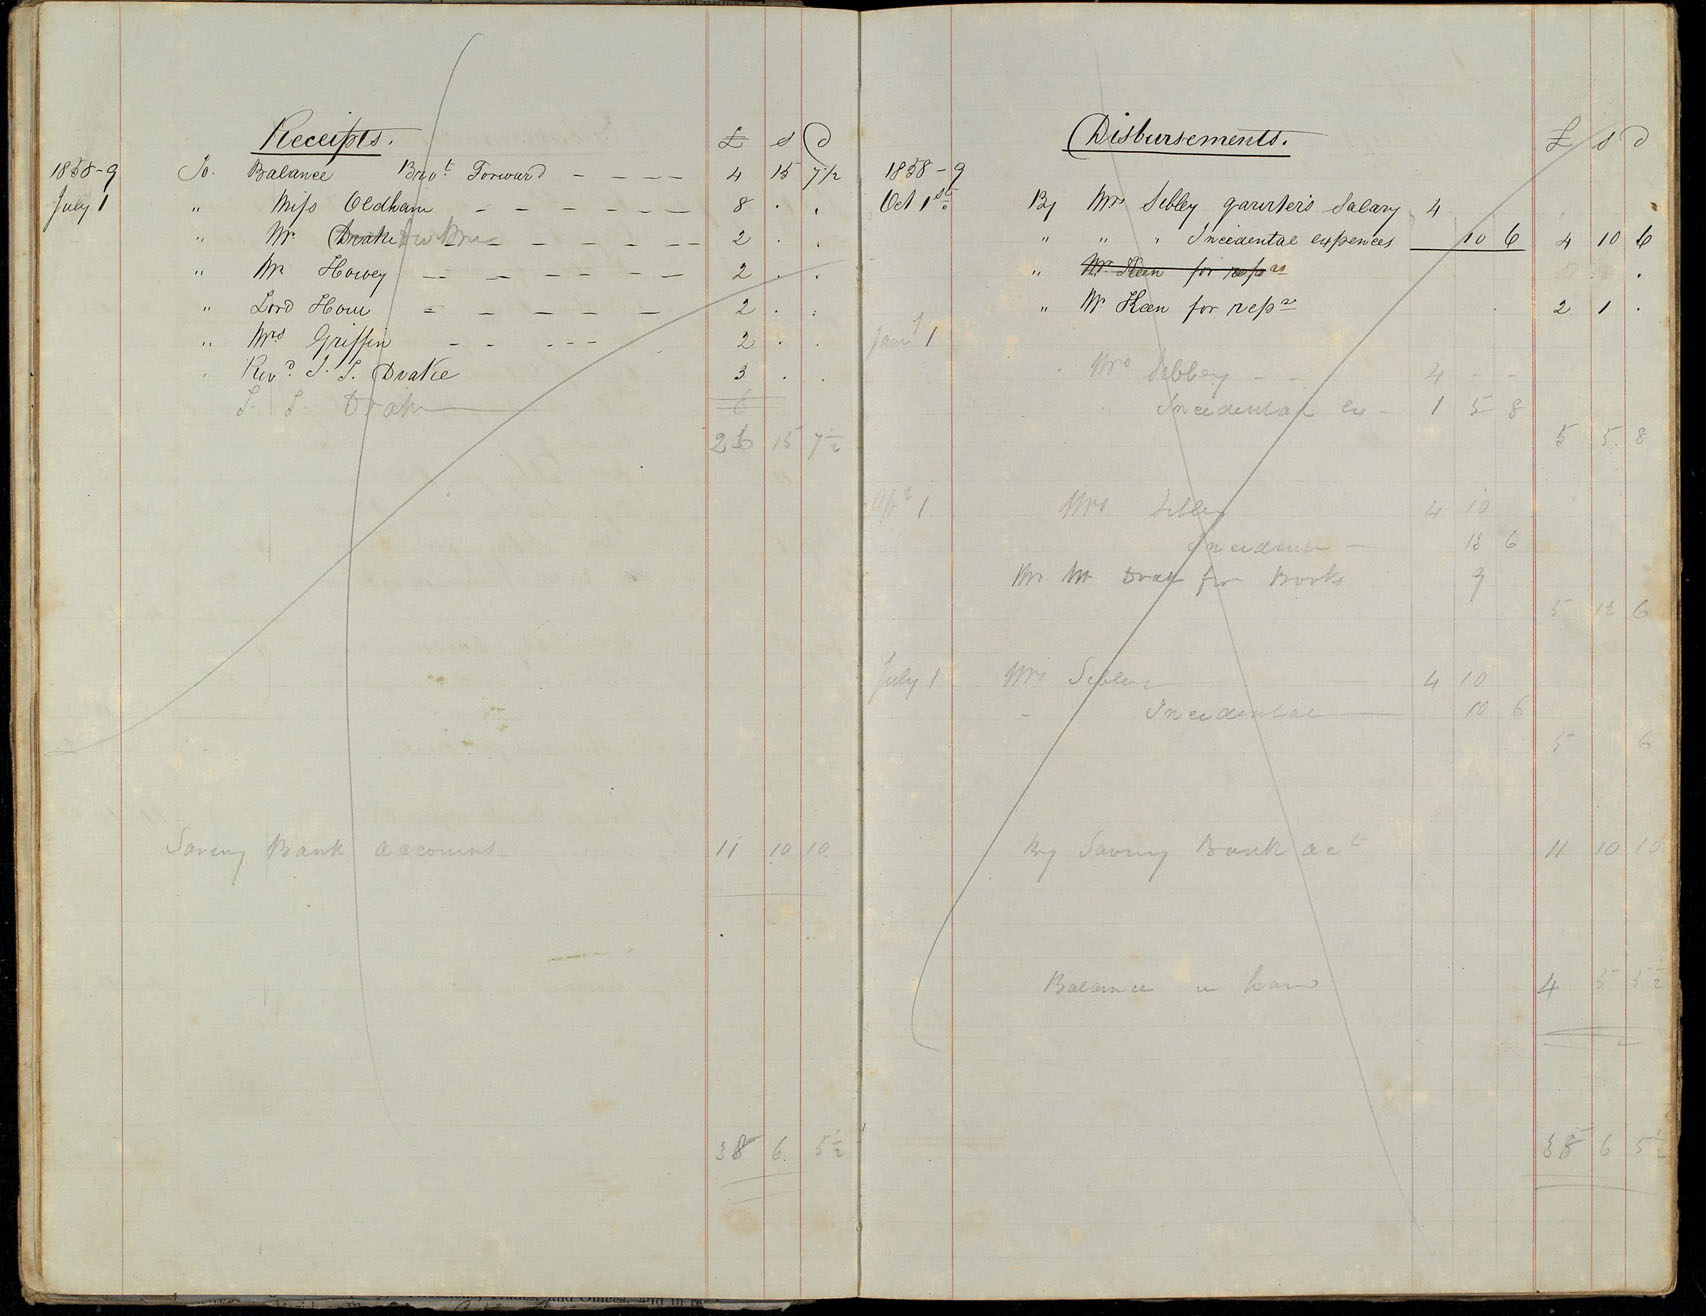 Receipts.
£ s d
1858-9 To. Balance Bro.t Forward - - - - 4 15 7 1/2
July 1 " Miss Oldham - - - - - - 8 . .
" Mr Drake - - - - - - 2 . .
" Mr Howey - - - - - - - 2 . .
" Lord Howe - - - - - 2 . .
" Mrs Griffin - - - - - 2 . .
" Revd. T. T. Drake 3 . .
T. T. Drake
15 7 1/2
Saving Bank account 11 10 10
38 6 5 1/2
Disbursements.
£ s d
1858-9
Oct 1st " By Mrs Sibley quarter's Salary 4
" " " Incidental expences 10 6 4 10 6
" Mr Keen for reprs
" Mr Keen for repr 2 1 .
Jany 1
Mrs Sibley - - 4 - -
" Incidental ex - 1 5 8
5 5 8
Apr 1. Mrs Sibley 4 10
Incident - 13 6
Mr Drake for Books 9
5 12 6
July 1 Mrs Sibley 4 10
- Incidental 10 6
5 6
By Saving Bank act 11 10 10
Balance in hand 4 5 5 1/2
38 6 5 1/2